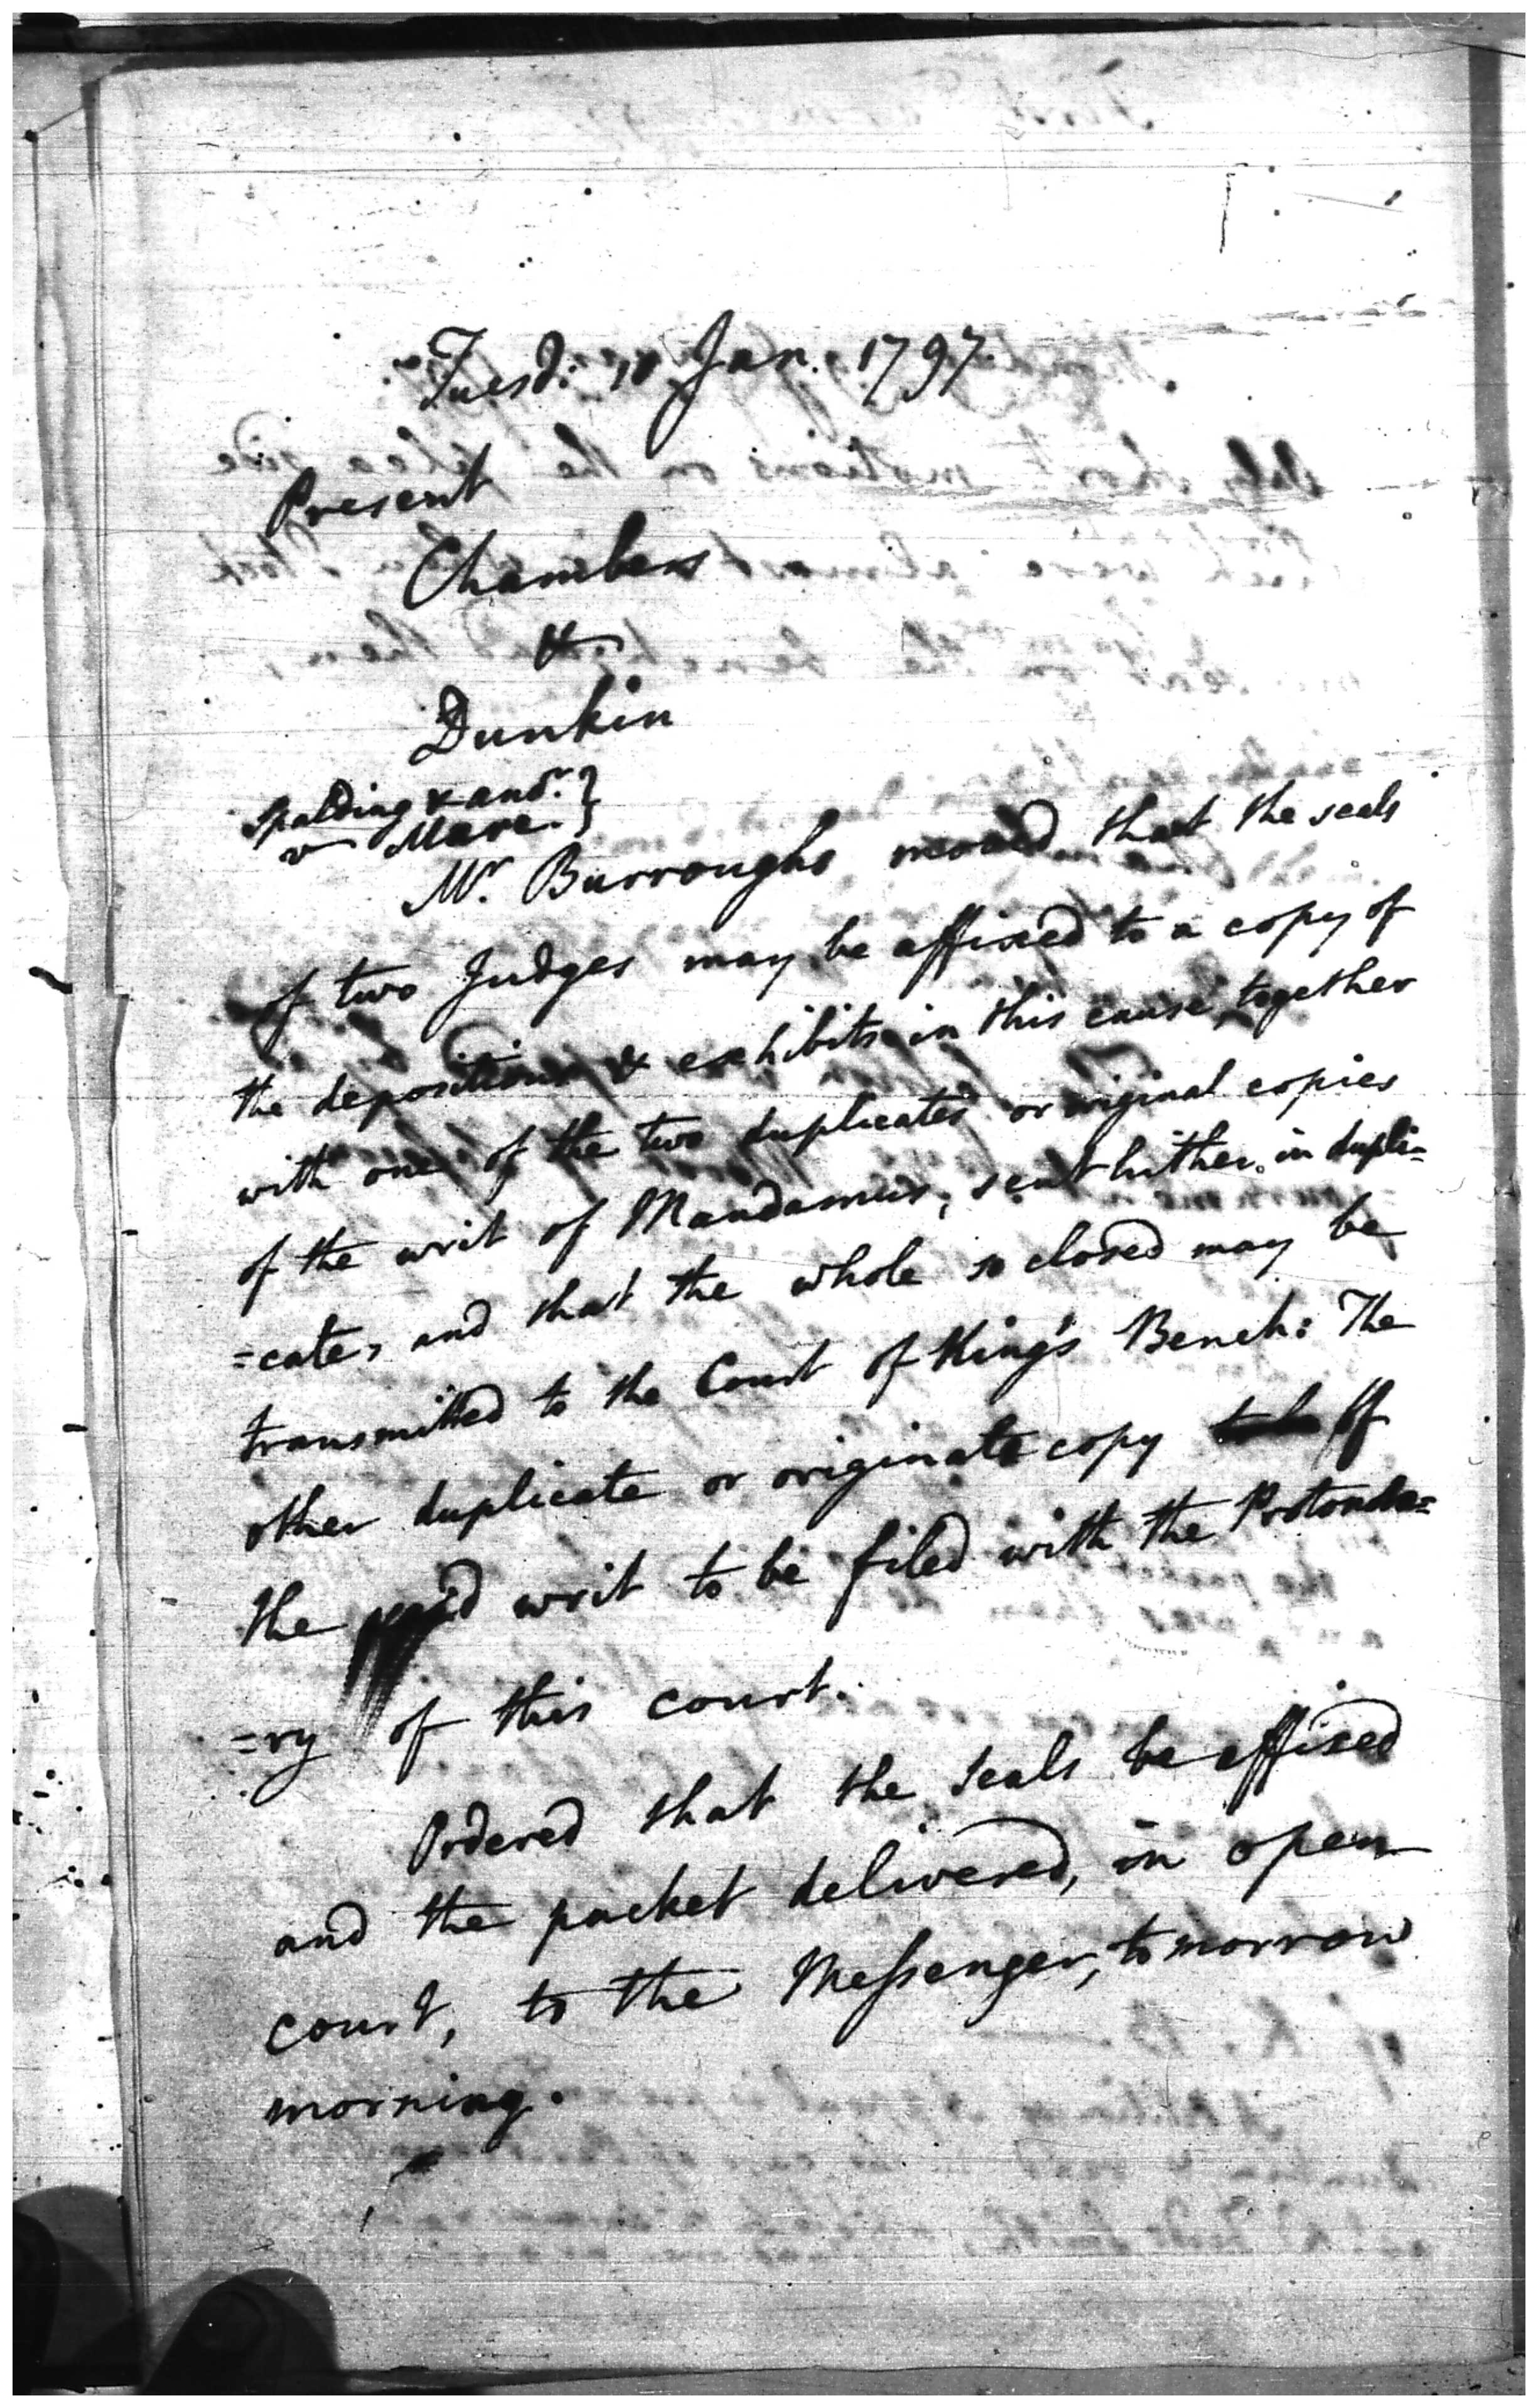 Tuesd: 10 Jan. 1797.
Present
Chambers
&
Dunkin
Spalding & anor. }
v Mere. }
Mr. Burroughs moved that the seals
of two Judges may be affixed to a copy of
the depositions & exhibits in this cause, together
with one of the two duplicates or original copies
of the writ of Mandamus, sent hither in dupli=
=cate, and that the whole so closed may be
transmitted to the Court of King's Bench: The
other duplicate or original copy of
the said writ to be filed with the Protonota=
=ry of this court.
Ordered that the seals be affixed
and the packet delivered, in open
court, to the Messenger, tomorrow
morning.